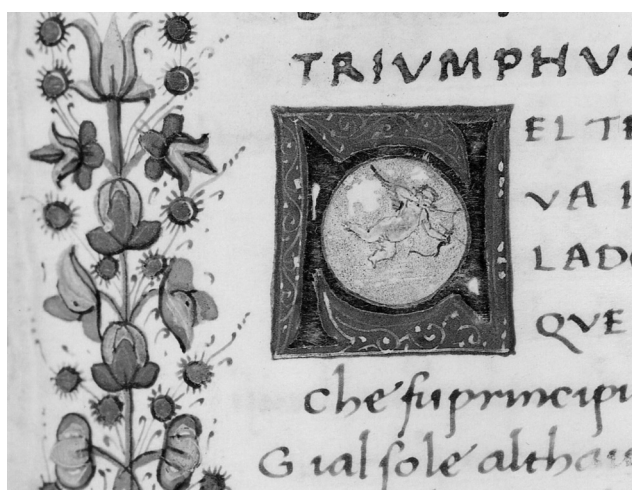 TRIVMPHVS
NEL TE
VA I
LADO
QVE
che fu principi
Gial sole althau